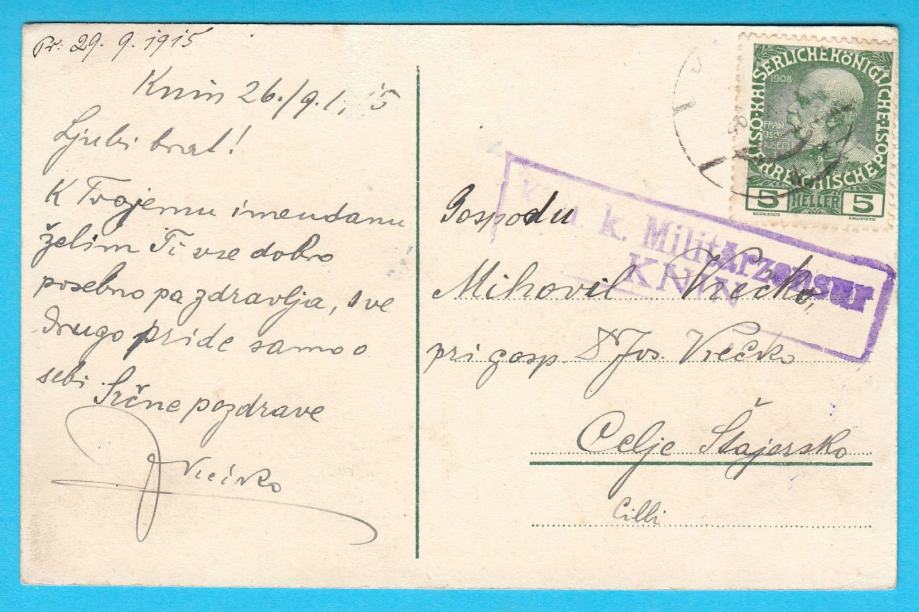 Pr: 29. 9. 1915
Knin 26./9. 1915
Ljubi brat!
K Tvojemu imendanu
želim Ti vse dobro
posebno pa zdravlja, sve
drugo pride samo o
sebi Srčne pozdrave
Vrečko
Gospodu
Mihovil Vrečko,
pri gosp. Dr Jos. Vrečko
Celje Štajersko
Cilli
K. u. k. Militärzensur
KNIN
KAISERLICHE KÖNIGLICHE
ÖSTERREICHISCHE POST
1908
FRANZ
JOSEPH I
5 HELLER 5